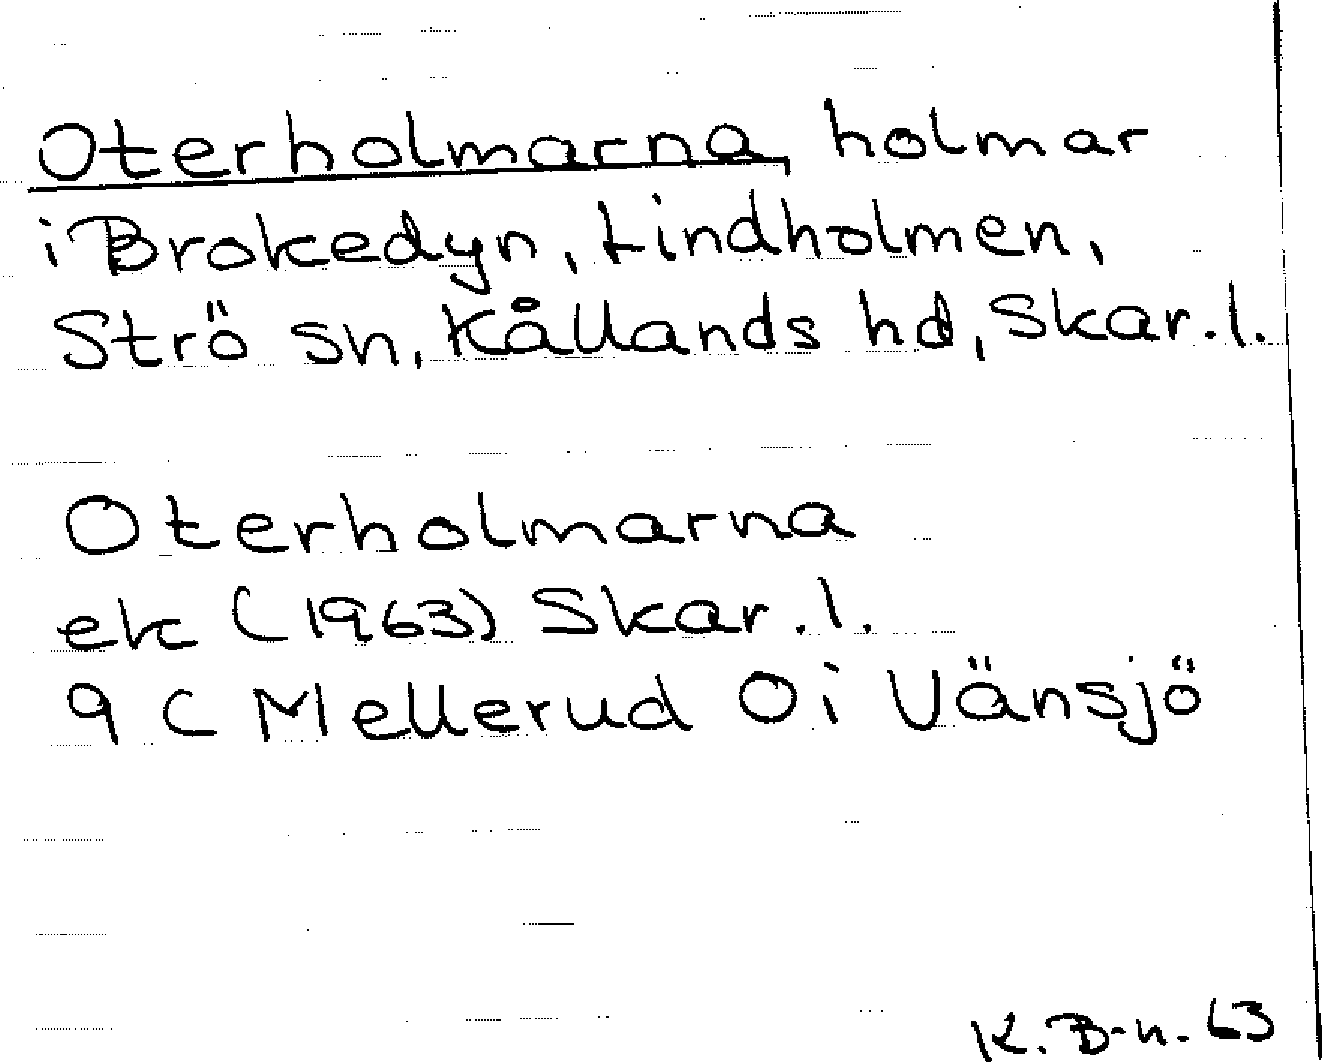 Oterholmarna, holmar
i Brokedyn, Lindholmen,
Strö sn, Kållands hd, Skar.l.
Oterholmarna
ek (1963) Skar.l.
9 C Mellerud Öi Vänsjö
K.B-n. 63